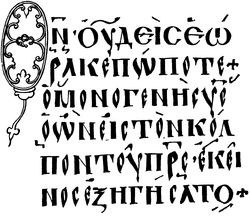 ΘΝ̅·ΟΥΔΕῚϹΕѠ
ΡΑΚΕΠΩΠΟΤΕ+
ὉΜΟΝΟΓΕΝΗϹΥ̅Ϲ̅
ὉὮΝΕΙϹΤῸΝΚΟΛ
ΠΟΝΤΟΥΠ̅Ρ̅Ϲ̅·ΕΚΕΙ
ΝΟϹΕΞΗΓΗϹΑΤΟ+